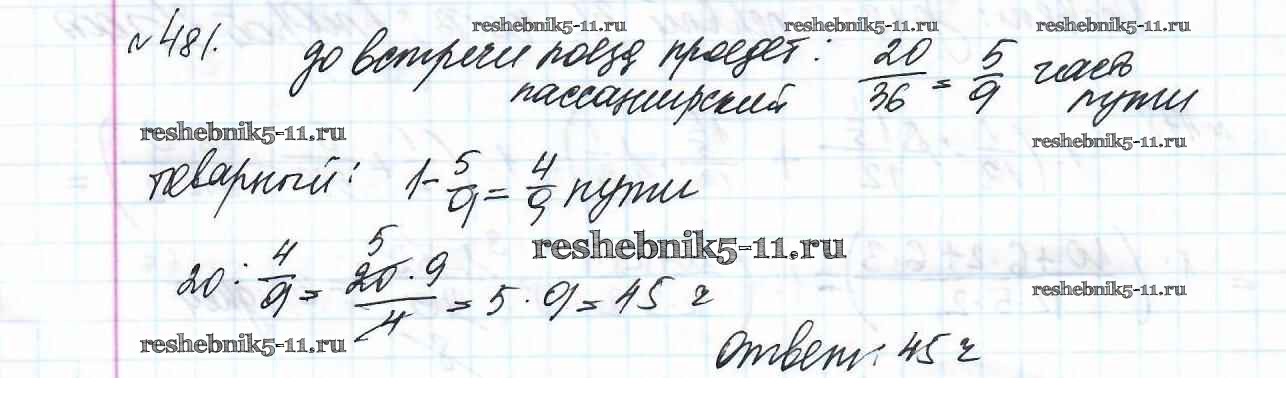 reshebnik5-11.ru reshebnik5-11.ru reshebnik5-11.ru
№481. до встречи поезд проедет: 20/36 = 5/9 часть
пассажирский пути
reshebnik5-11.ru reshebnik5-11.ru
товарный: 1-5/9 = 4/9 пути
reshebnik5-11.ru
20 : 4/9 = 20·9/4 = 5·9 = 45 ч
5
reshebnik5-11.ru
reshebnik5-11.ru
Ответ: 45 ч